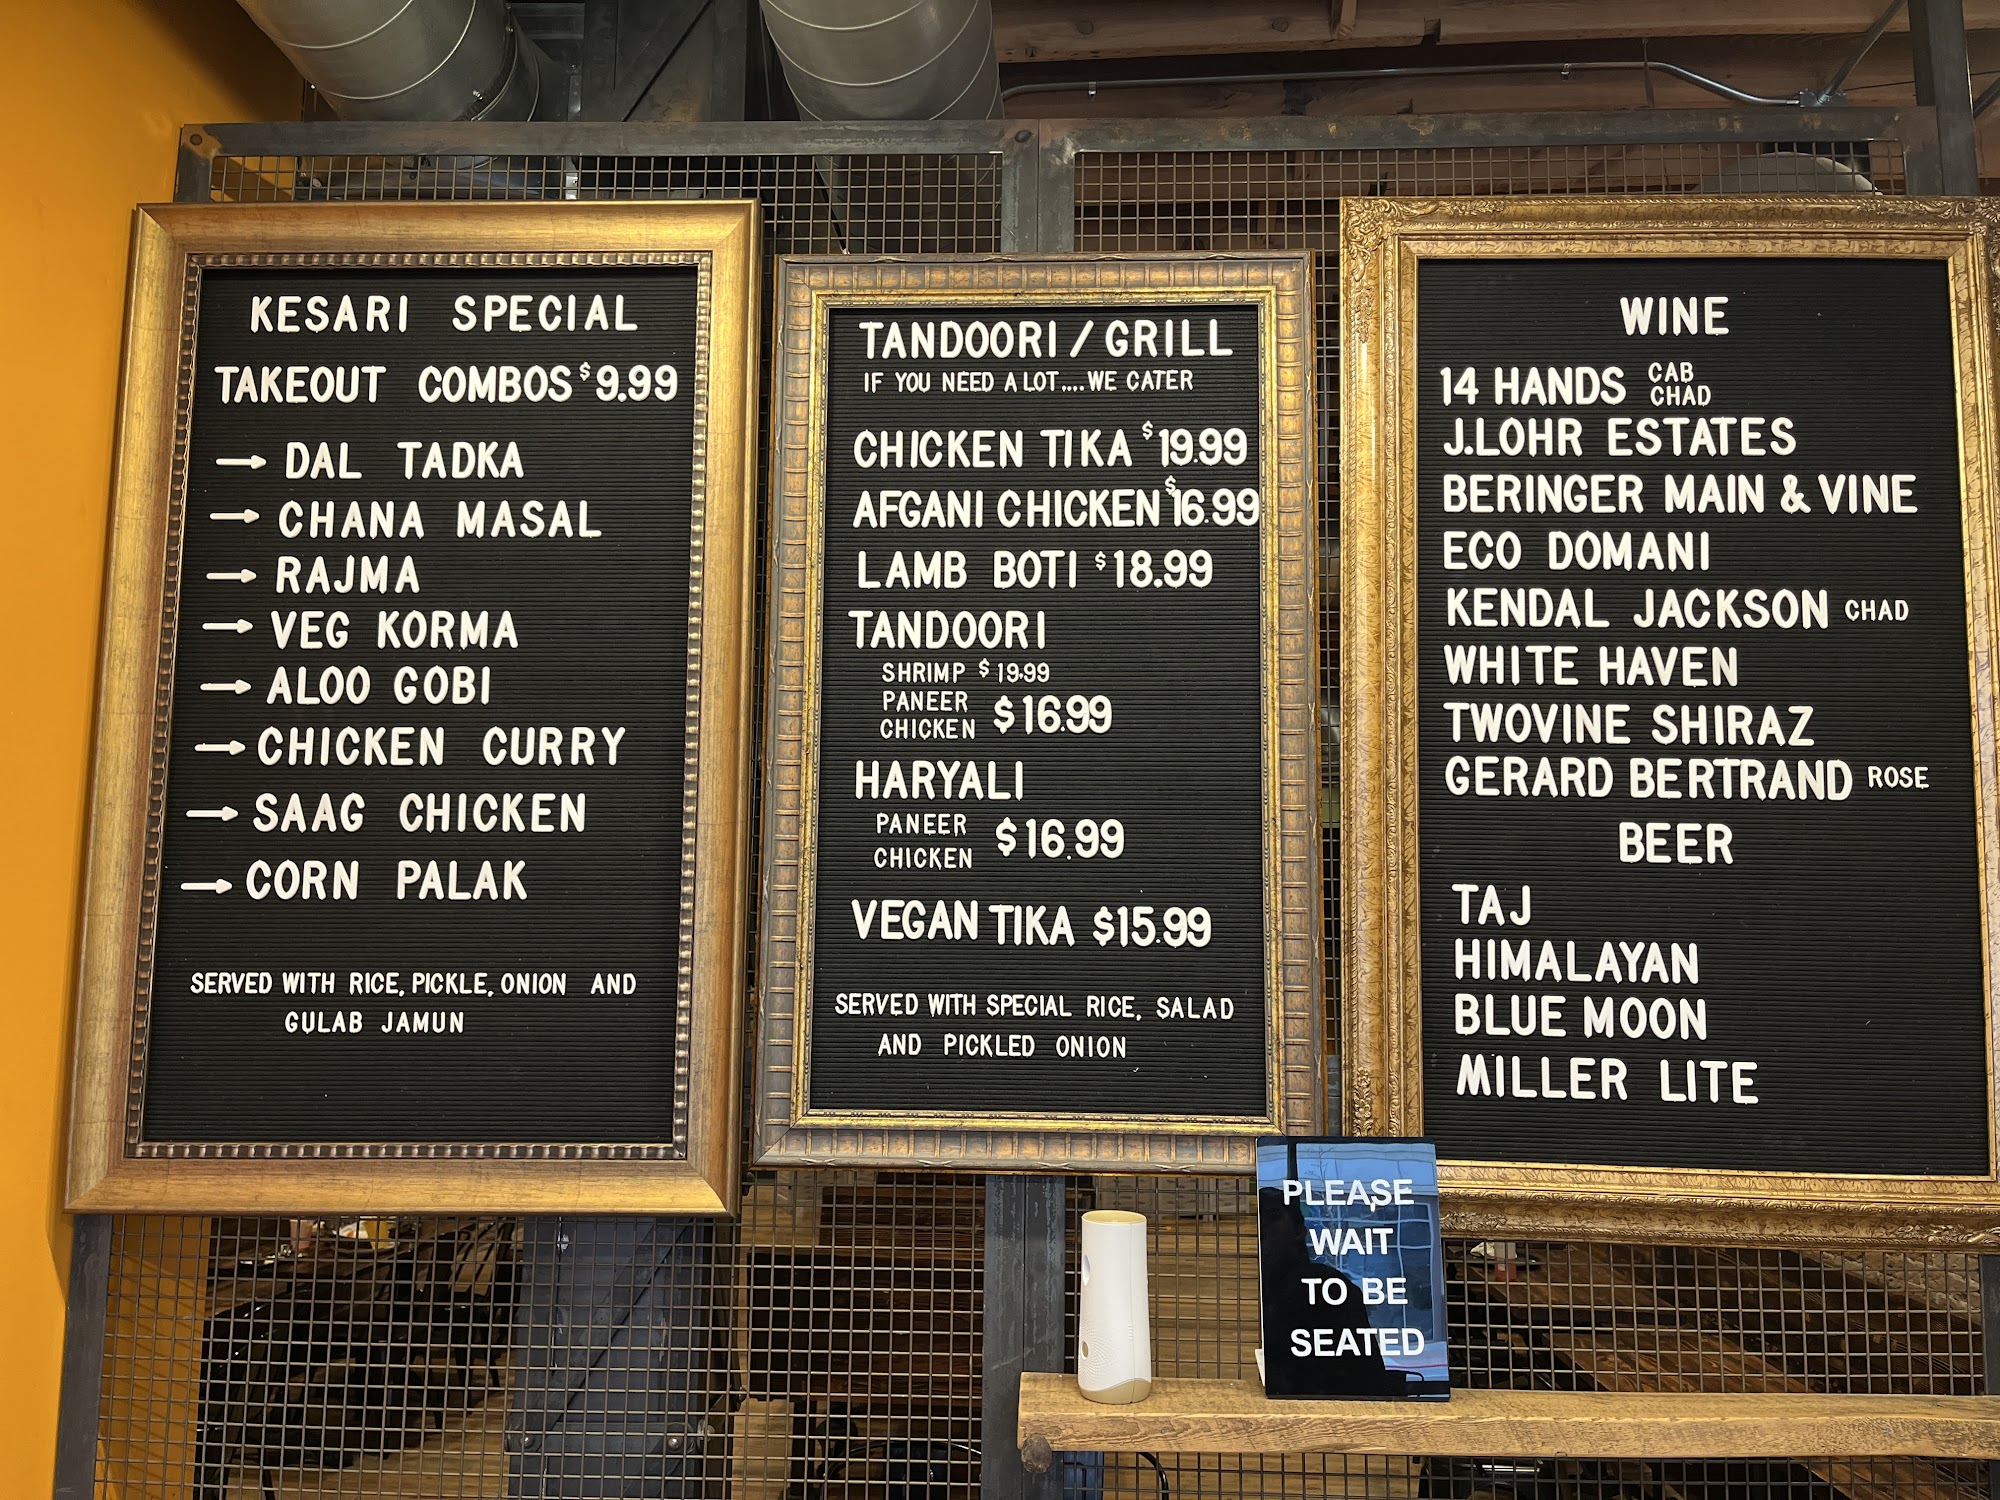 KESARI SPECIAL
TAKEOUT COMBOS $9.99
→ DAL TADKA
→ CHANA MASAL
→ RAJMA
→ VEG KORMA
→ ALOO GOBI
→ CHICKEN CURRY
→ SAAG CHICKEN
→ CORN PALAK
SERVED WITH RICE, PICKLE, ONION AND
GULAB JAMUN
TANDOORI / GRILL
IF YOU NEED A LOT....WE CATER
CHICKEN TIKA $19.99
AFGANI CHICKEN $16.99
LAMB BOTI $18.99
TANDOORI
SHRIMP $19.99
PANEER
CHICKEN $16.99
HARYALI
PANEER
CHICKEN $16.99
VEGAN TIKA $15.99
SERVED WITH SPECIAL RICE, SALAD
AND PICKLED ONION
WINE
14 HANDS CAB
CHAD
J.LOHR ESTATES
BERINGER MAIN & VINE
ECO DOMANI
KENDAL JACKSON CHAD
WHITE HAVEN
TWOVINE SHIRAZ
GERARD BERTRAND ROSE
BEER
TAJ
HIMALAYAN
BLUE MOON
MILLER LITE
PLEASE
WAIT
TO BE
SEATED